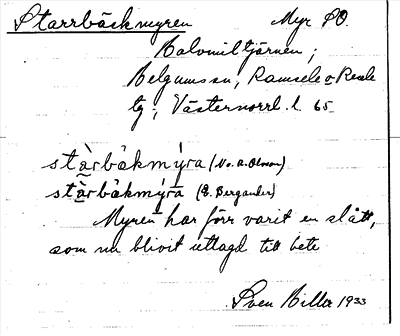 Starrbäckmyren Myr SO.
Kolomiltjärnen;
Helgumssn; Ramsele o Resele
tg; Västernorrl. l. 65
stàrbäkmýra (No. A. Olsson)
stàrbäkmýra (E. Bergander)
Myren har förr varit en slått,
som nu blivit uttagd till bete
Sven Hilla 1933